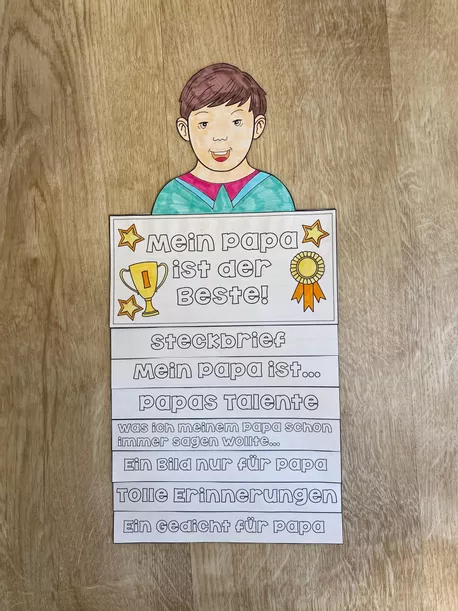 Mein Papa
ist der
Beste!
1
Steckbrief
Mein Papa ist...
Papas Talente
Was ich meinem Papa schon
immer sagen wollte...
Ein Bild nur für Papa
Tolle Erinnerungen
Ein Gedicht für Papa